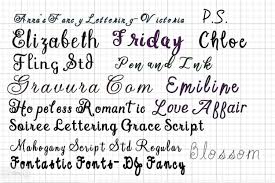 Anna's Fancy Lettering-Victoria P.S.
Elizabeth Friday Chloe
Fling Std Pen and Ink
Gravura Com Emiline
Hopeless Romantic Love Affair
Soiree Lettering Grace Script
Mahogany Script Std Regular Blossom
Fontastic Fonts- DJ Fancy